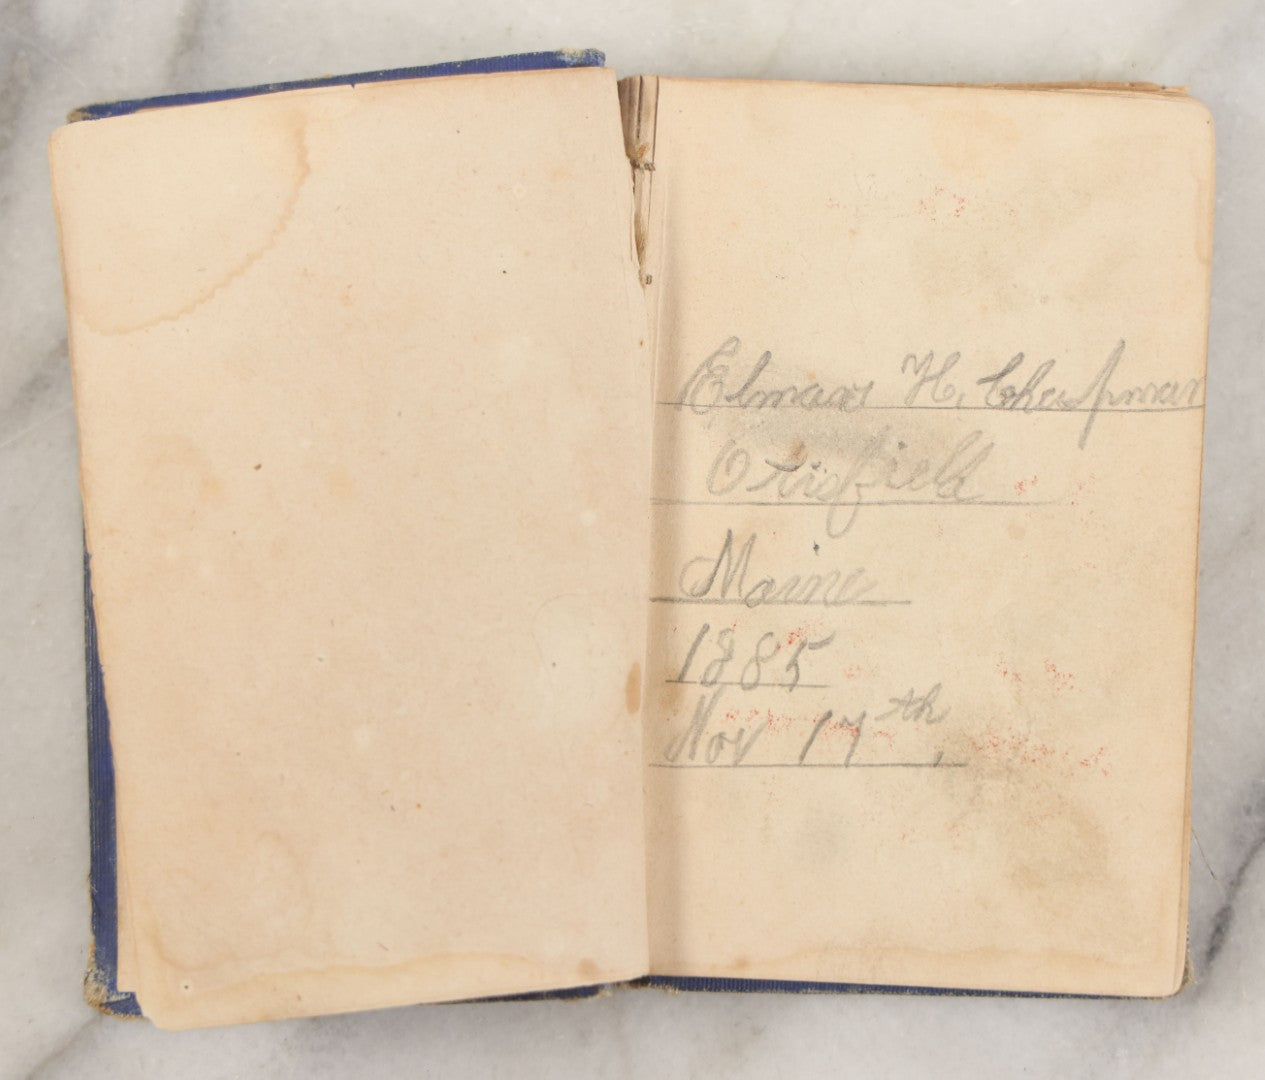 Elmars H. Chapman
Otisfield
Maine
1885
Nov 17th,